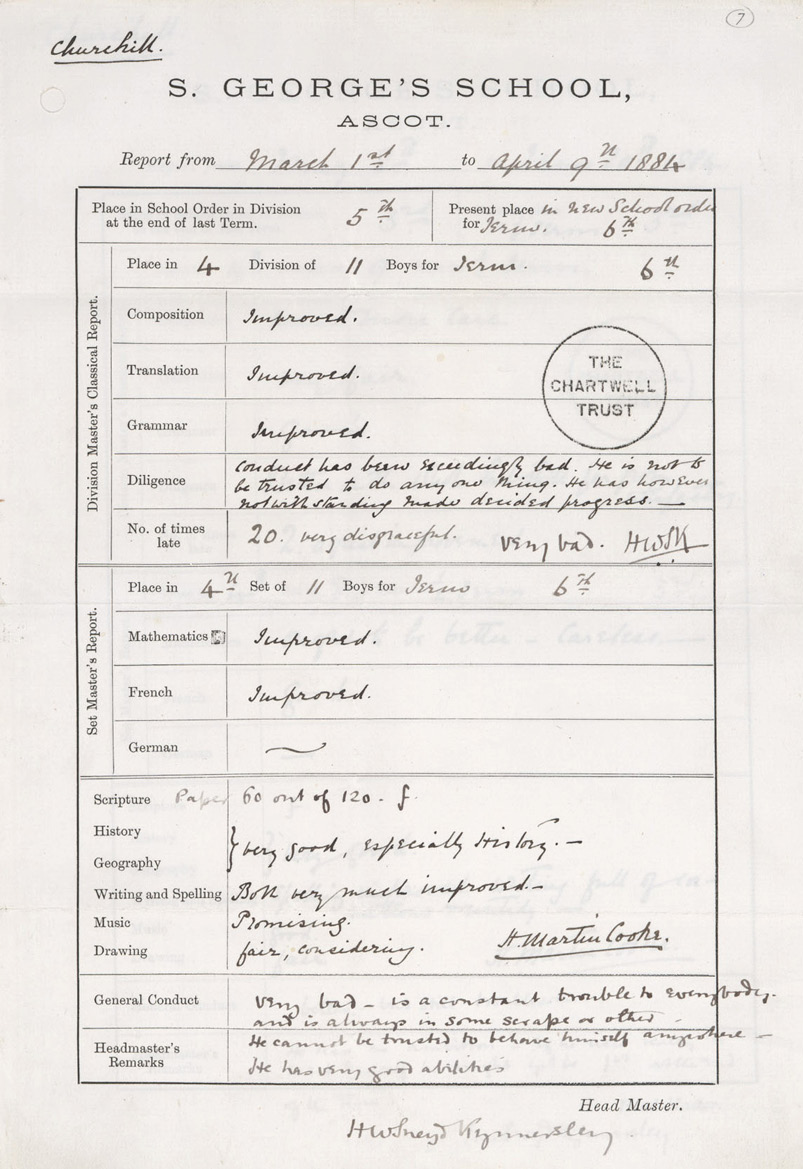 7
Churchill.
S. GEORGE'S SCHOOL,
ASCOT.
Report from March 1st to April 9th 1884
Place in School Order in Division at the end of last Term. 5th
Present place in new School order for Term. 6th
Division Master's Classical Report.
Place in 4 Division of 11 Boys for Term. 6th
Composition Improved.
Translation Improved.
THE
CHARTWELL
TRUST
Grammar Improved.
Diligence Conduct has been exceedingly bad. He is not to
be trusted to do any one thing. He has however
notwithstanding made decided progress. —
No. of times late 20. very disgraceful. Very bad. HWSK
Set Master's Report.
Place in 4th Set of 11 Boys for Term 6th
Mathematics Improved.
French Improved.
German —
Scripture Paper 60 out of 120.
History
Geography } very good, especially History. —
Writing and Spelling Both very much improved. —
Music Promising.
Drawing fair, considering. H. Martin Cooke.
General Conduct Very bad – is a constant trouble to everybody.
and is always in some scrape or other –
Headmaster's Remarks He cannot be trusted to behave himself anywhere –
He has very good abilities
Head Master.
HW Sneyd Kynnersley